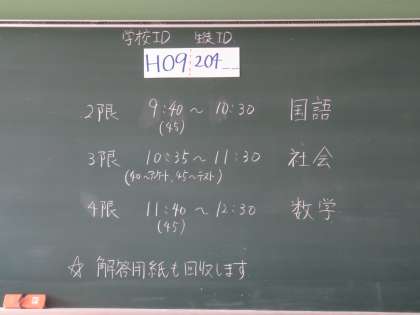 学校ID 生徒ID
H09 204__
2限 9:40〜10:30 国語
(45)
3限 10:35〜11:30 社会
(40〜アンケート、45〜テスト)
4限 11:40〜12:30 数学
(45)
☆ 解答用紙も回収します